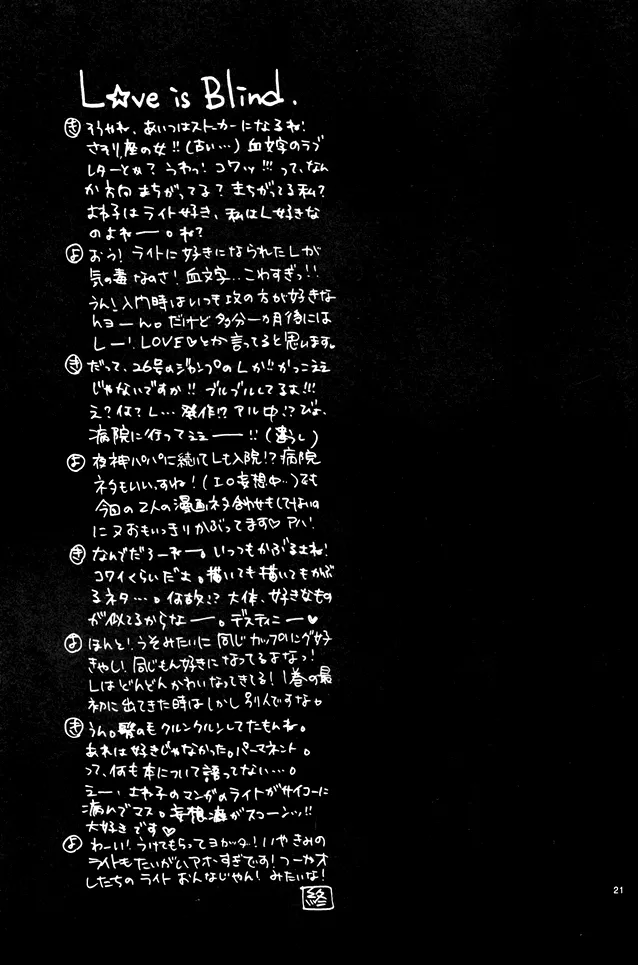 L☆ve is Blind.
き そうやね、あいつはストーカーになるね!
さそり座の女!!(古い…)血文字のラブ
レターとか?うわっ!コワッ!!!って、なん
か方向まちがってる?まちがってる私?
よね子はライト好き、私はL好きな
のよねー。ね?
よ おう!ライトに好きになられたLが
気の毒なのさ!血文字…こわすぎっ!!
うん!入門時はいつも攻の方が好きな
んヨーん。だけど多分一か月後には
しー!LOVE♡とか言ってると思います。
き だって、26号のジャンプのLが!!かっこええ
じゃないですか!!ブルブルしてるよ!!!
え?何?L…発作!?アル中!?びょ、
病院に行ってえぇー!!(落ちつし)
よ 夜神パパに続いてLも入院!?病院
ネタもいいすね!(エロ妄想中…)でも
今回の2人の漫画ネタ合わせもしてないの
に又おもいっきりかぶってます♡アハ!
き なんでだろーねー。いっつもかぶるよね!
コワイくらいだよ。描いても描いてもかぶ
るネタ…。何故!?大体、好きなもの
が似てるからなー。デスティニー♡
よ ほんと!うそみたいに同じカップリング好
きやし!同じもん好きになってるよなっ!
Lはどんどんかわいなってきてる!1巻の最
初に出てきた時はしかし別人ですな。
き うん。髪の毛クルンクルンしてたもんね。
あれは好きじゃなかった。パーマネント。
って、何も本について語ってない…。
えー、よね子のマンガのライトがサイコーに
病んでマス。妄想癖がスコーンッ!!
大好きです♡
よ わーい!うけてもらってヨカッタ!いやきみの
ライトもたいがいアホすぎです!つーかオ
したちのライトおんなじやん!みたいな!
終
21